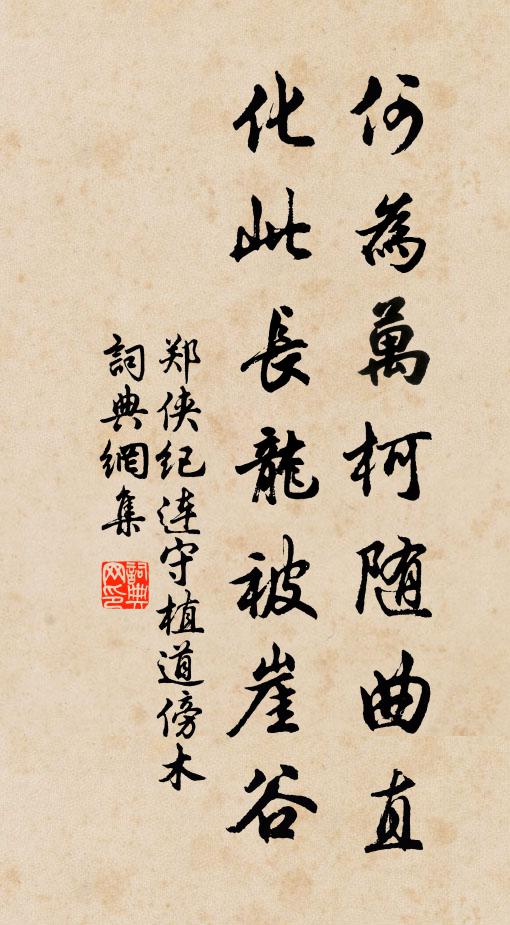 何為萬柯随曲直
化此長龍被崖谷
郑侠纪連守植道傍木
詞典網集
詞典
网印